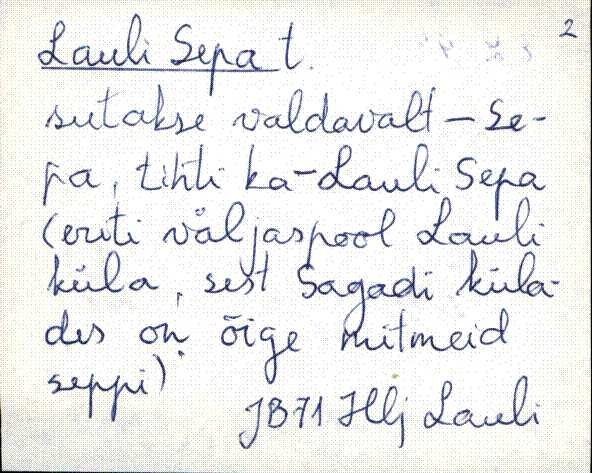 2
Lauli Sepa t.
sutakse valdavalt – Se-
pa, tihti ka – Lauli Sepa
(eriti väljaspool Lauli
küla, sest Sagadi küla-
des on õige mitmeid
seppi)
JB71 Hlj Lauli